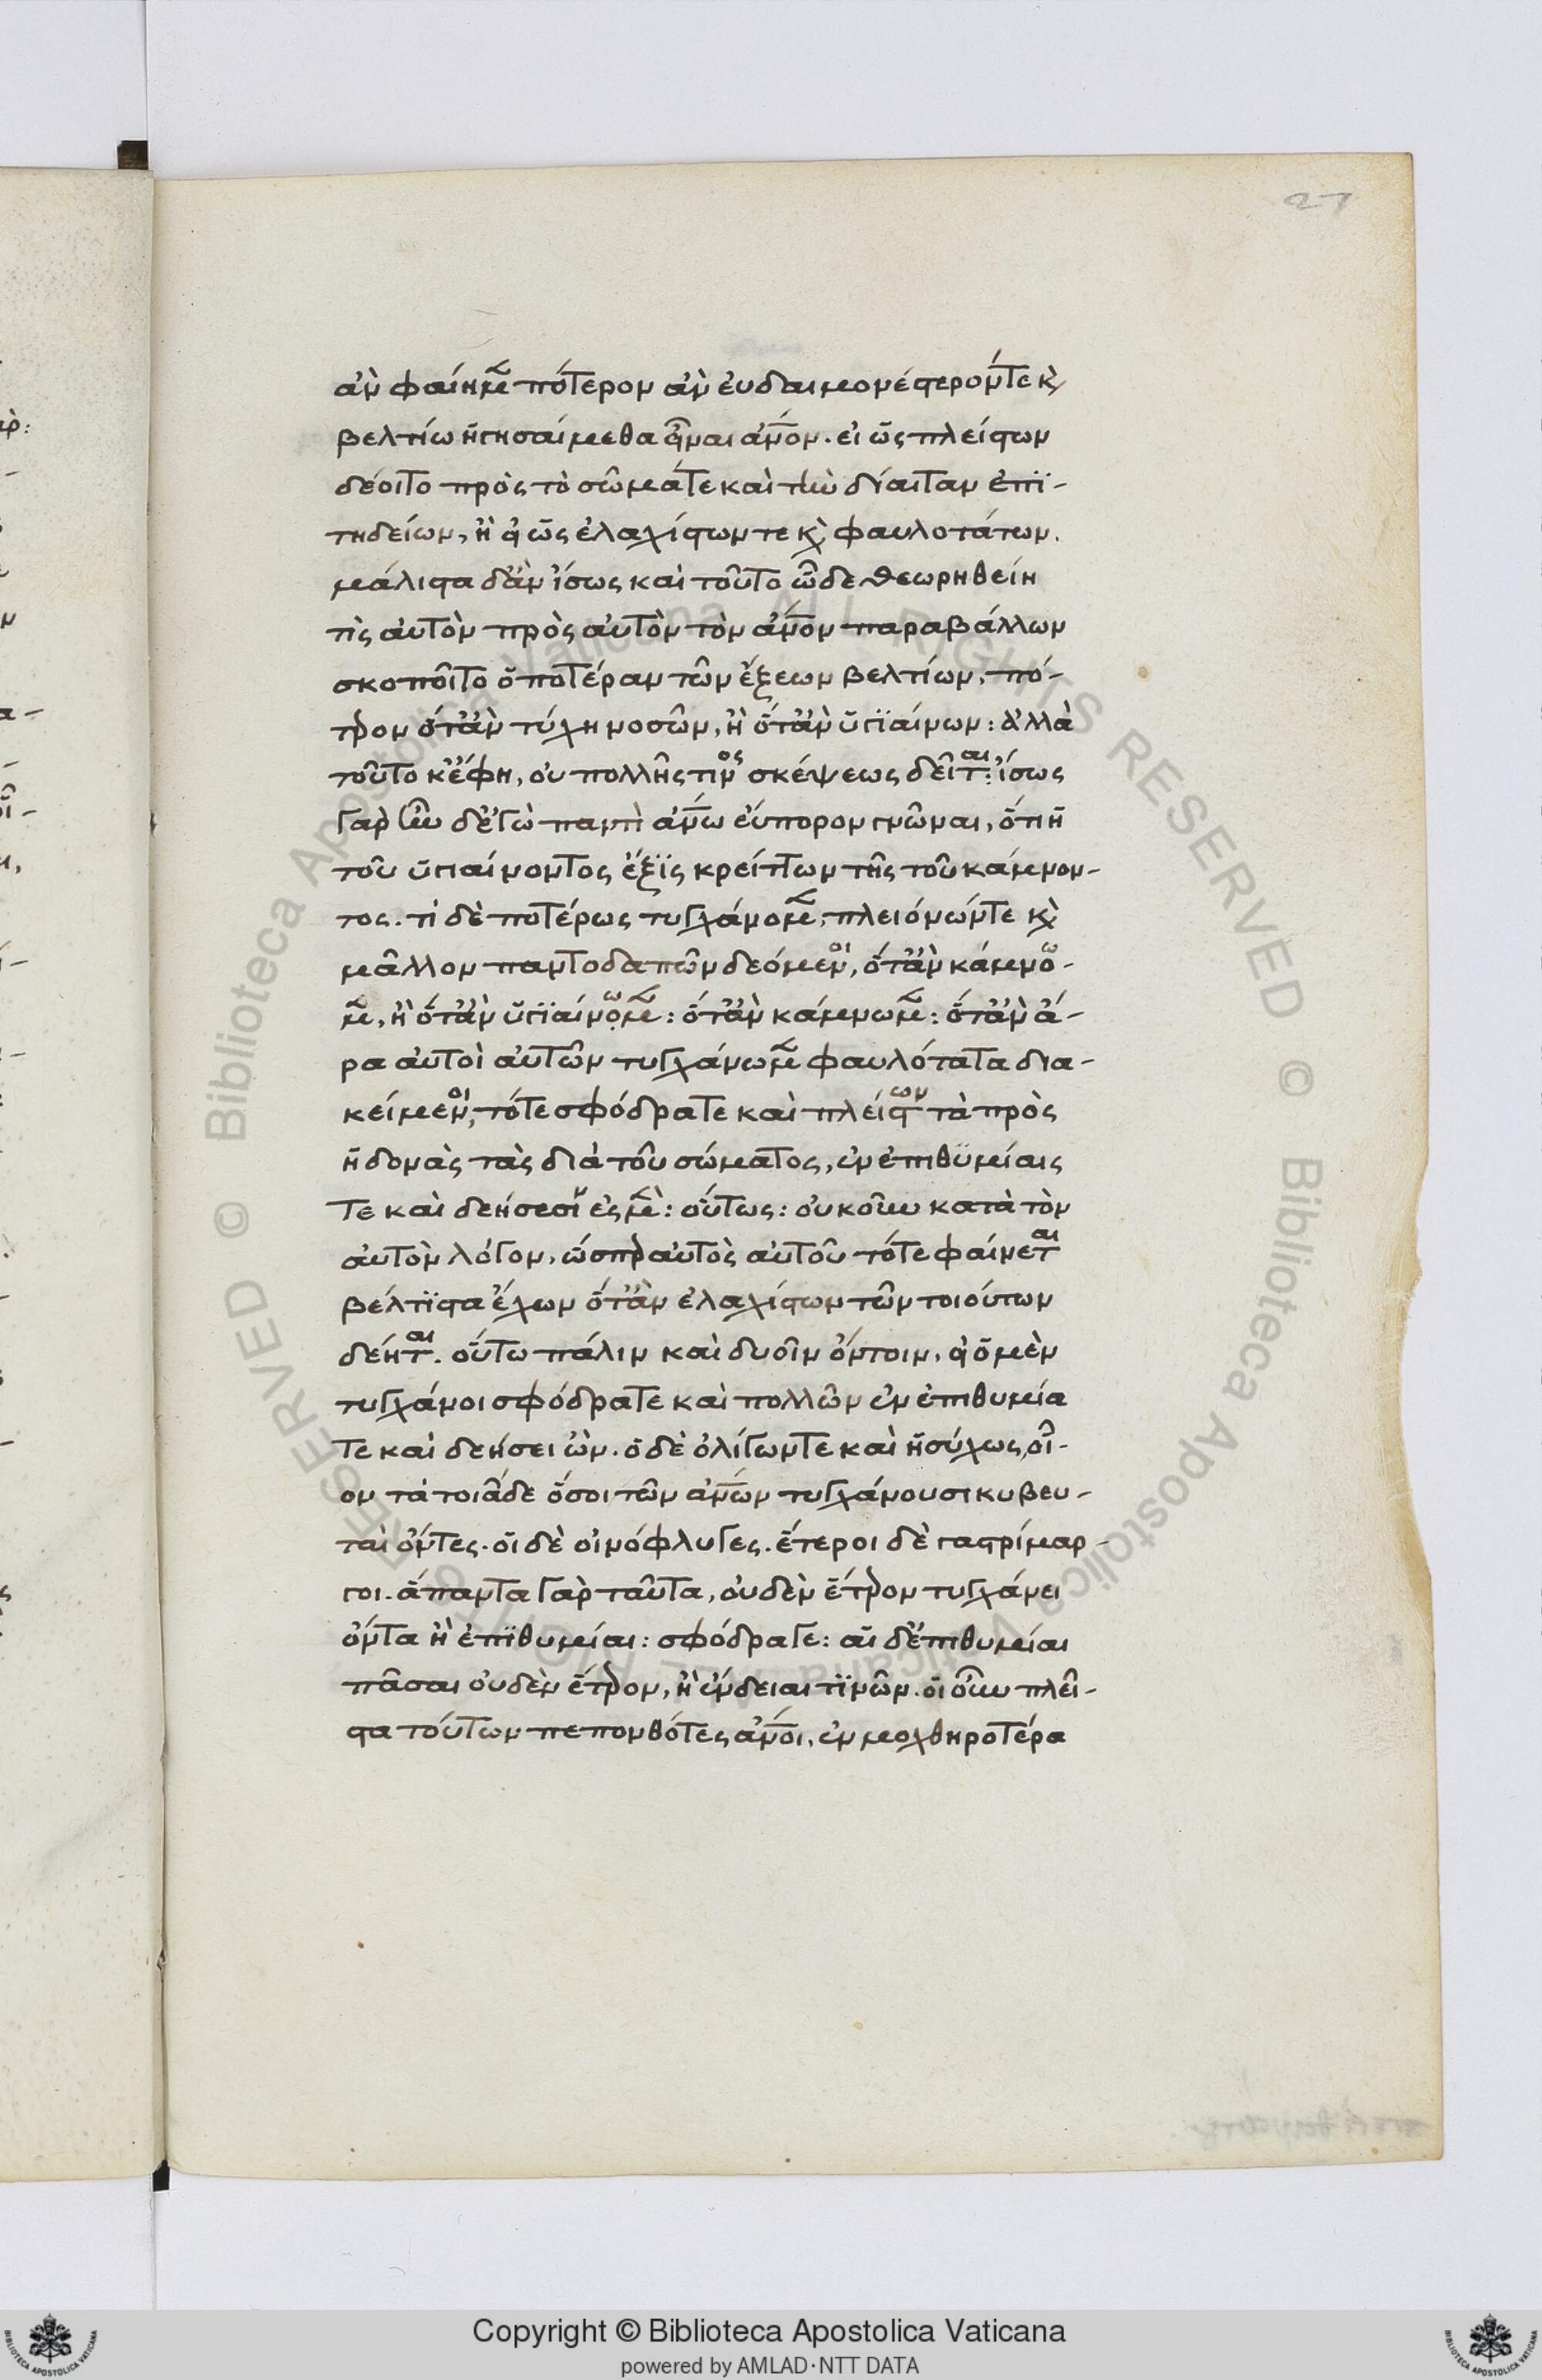 27
ἀν φαίημεν πότερον ἀν ἐυδαιμονέστερόν τε κὶ
βελτίω ἡγησαίμεθα εἶναι ἀνον. εἰ ὡς πλείστων
δέοιτο πρὸς τὸ σῶμά τε καὶ τὴν δίαιταν ἐπϊ-
τηδείων, ἢ εἰ ὡς ἐλαχίστων τε κὶ φαυλοτάτων.
μάλιστα δ ἀν ἴσως καὶ τοῦτο ὧδε θεωρηθείη
τὶς αὐτὸν πρὸς αὐτὸν τὸν ἄνον παραβάλλων
σκοποῖτο ὁποτέραν τῶν ἕξεων βελτίων, πό-
τρον ὅτἀν τύχη νοσῶν, ἢ ὅτἀν ὑγϊαίνων: ἀλλὰ
τοῦτο κ ἔφη, ου πολλῆς τινος σκέψεως δεῖται: ἴσως
γαρ οὖν δ ἐγὼ παντὶ ἀνω ἐύπορον γνῶναι, ὅτι ἡ
τοῦ ὑγιαίνοντος ἕξϊς κρείττων τῆς τοῦ κάμνον-
τος. τί δὲ ποτέρως τυγχάνομεν, πλειόνων τε κὶ
μᾶλλον παντοδαπῶν δεόμενοι, ὅτἀν κάμνο-
μεν, ἢ ὅτἀν ὑγϊαίνομεν: ὅτἀν κάμνωμεν: ὅτἀν ἄ-
ρα αὐτοὶ αὑτῶν τυγχάνωμεν φαυλότατα δια-
κείμενοι, τότε σφόδρα τε καὶ πλείστων τὰ πρὸς
ἡδονὰς τὰς διὰ τοῦ σώματος, ἐν ἐπιθϋμίαις
τε καὶ δεήσεσιν ἐσμὲν: οὕτως: ουκοῦν κατὰ τὸν
αὐτὸν λόγον, ὥσπρ αὐτὸς αὑτοῦ τότε φαίνεται
βέλτϊστα ἔχων ὅτἀν ἐλαχίστων τῶν τοιούτων
δέηται. οὕτω πάλιν καὶ δυοῖν ὄντοιν, εἰ ὁ μὲν
τυγχάνοι σφόδρα τε καὶ πολλῶν ἐν ἐπιθυμία
τε καὶ δεήσει ὢν. ὁ δὲ ὀλίγων τε καὶ ἡσύχως, οἷ-
ον τὰ τοιᾶδε ὅσοι τῶν ἀνων τυγχάνουσι κυβευ-
ταὶ ὄντες. οἱ δὲ οἰνόφλυγες. ἕτεροι δὲ γαστρίμαρ-
γοι. ἅπαντα γαρ ταῦτα, ουδὲν ἕτρον τυγχάνει
ὄντα ἢ ἐπϊθυμίαι: σφόδρα γε: αἱ δ ἐπιθυμίαι
πᾶσαι ουδὲν ἕτρον, ἢ ἔνδειαι τϊνῶν. οἱ οὖν πλεῖ-
στα τούτων πεπονθότες ἄνοι, ἐν μοχθηροτέρα
Copyright © Biblioteca Apostolica Vaticana
powered by AMLAD·NTT DATA